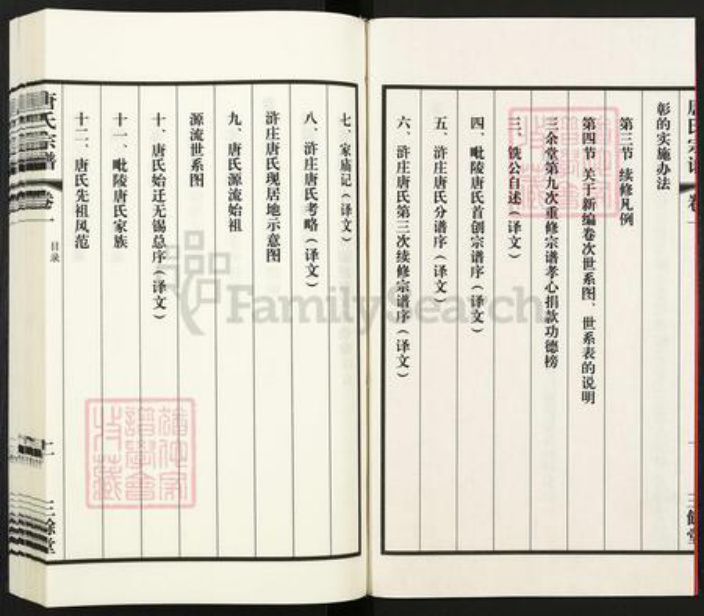 唐氏宗谱 卷一
彰的实施办法
第三节 续修凡例
第四节 关于新编卷次世系图、世系表的说明
三余堂第九次重修宗谱孝心捐款功德榜
三、铣公自述（译文）
四、毗陵唐氏首创宗谱序（译文）
五、浒庄唐氏分谱序（译文）
六、浒庄唐氏第三次续修宗谱序（译文）
三餘堂
七、家庙记（译文）
八、浒庄唐氏考略（译文）
浒庄唐氏现居地示意图
九、唐氏源流始祖
源流世系图
十、唐氏始迁无锡总序（译文）
十一、毗陵唐氏家族
十二、唐氏先祖风范
唐氏宗谱 卷一
目录
三餘堂
FamilySearch